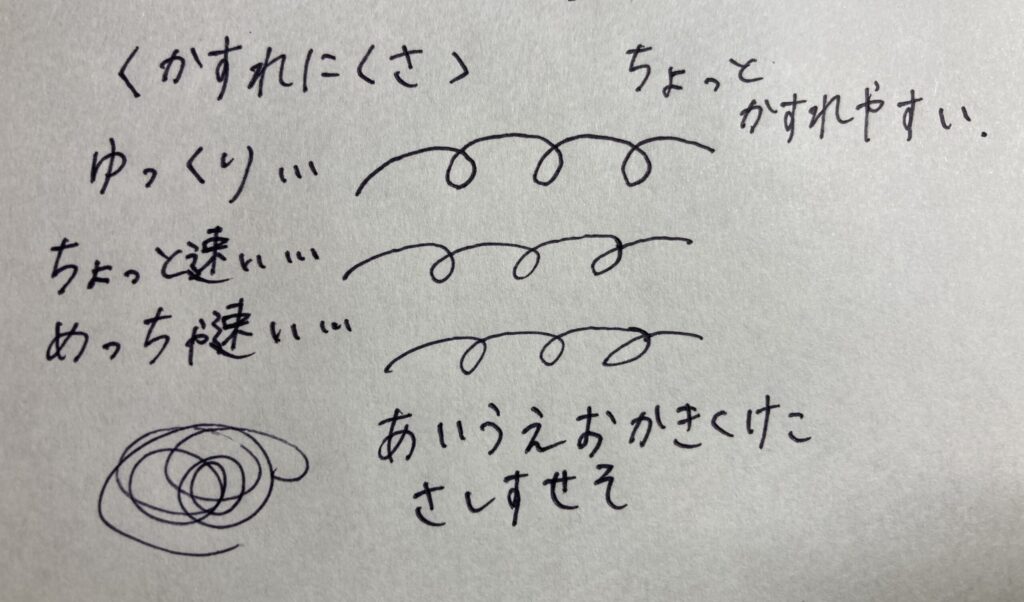 〈かすれにくさ〉
ちょっと
かすれやすい.
ゆっくり…
ちょっと速い…
めっちゃ速い…
あいうえおかきくけこ
さしすせそ